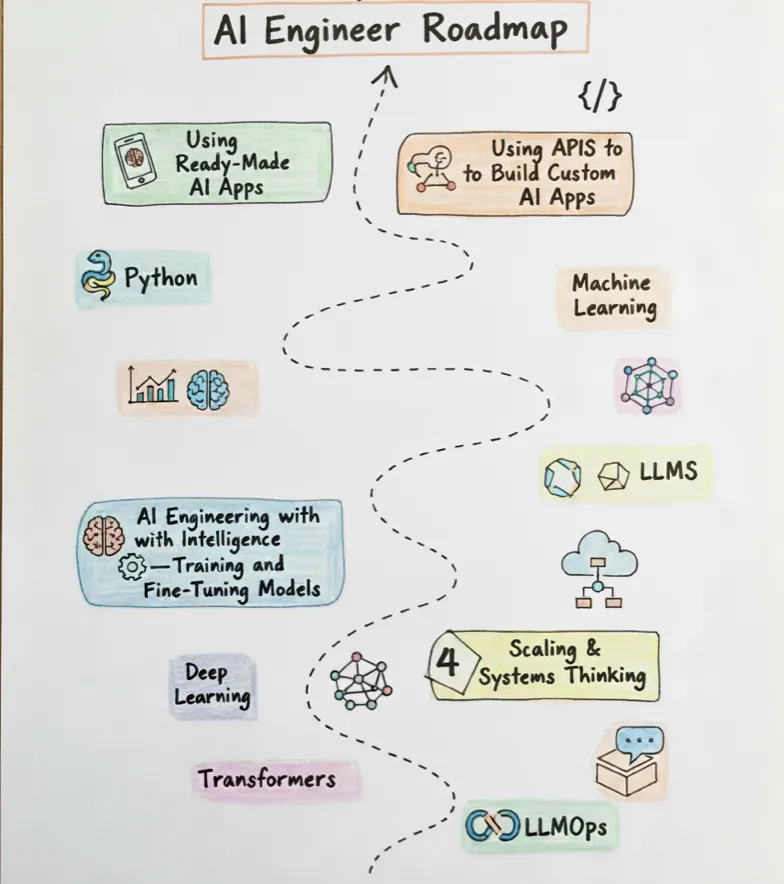 AI Engineer Roadmap
{/}
Using
Ready-Made
AI Apps
Using APIS to
to Build Custom
AI Apps
Python
Machine
Learning
LLMS
AI Engineering with
with Intelligence
—Training and
Fine-Tuning Models
4
Scaling &
Systems Thinking
Deep
Learning
Transformers
LLMOps